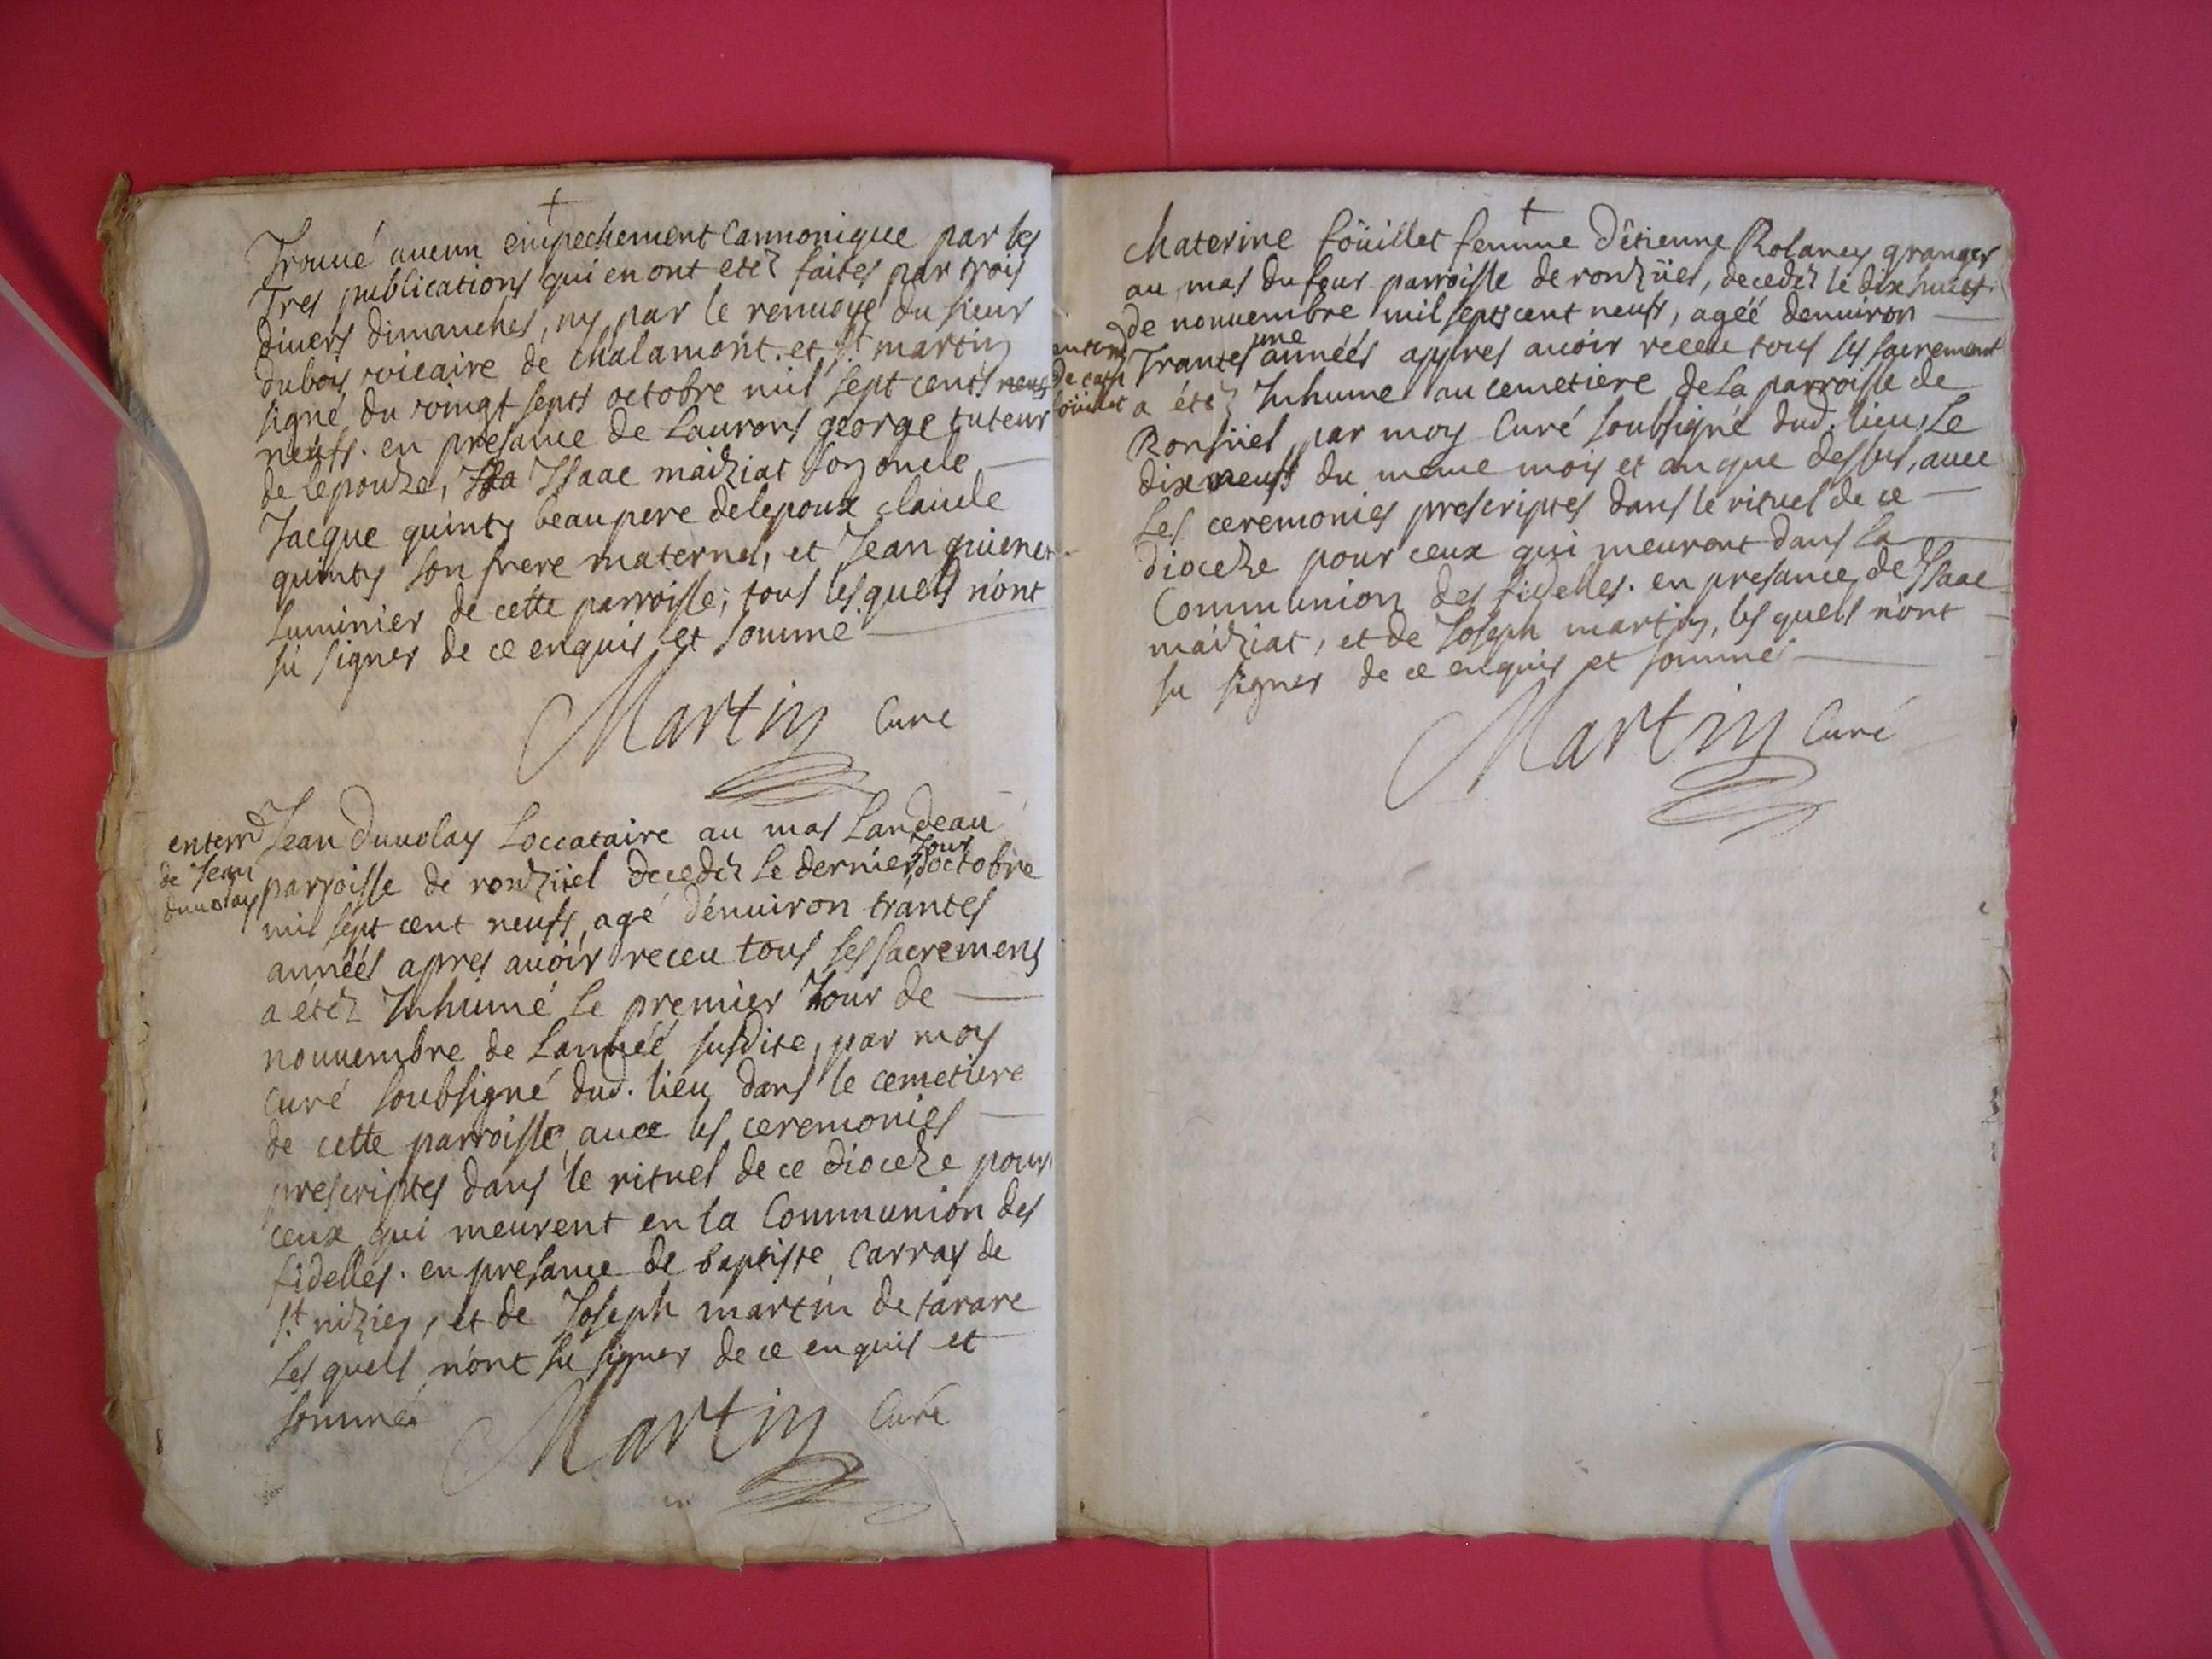 +
Trouué aucun empechement Cannonique par les
Tres publications qui en ont etéz faites par trois
diuers dimanches, ny par le renuoye du sieur
dubois vicaire de chalamont. et St. martin
signé du vingt septs octobre mil sept cents neufs
neufs. en presance de Laurons george tuteur
de lepouze, Isa Isaac maiziat son oncle
Jacque quinty beau pere de lepoux claude
quinty son frere maternel, et Jean guienet
Luminier de cette parroisse; tous lesquels n'ont
su signer de ce enquis et sommé
Martin Curé
enterrd
de Jean
duuolay
Jean Duuolay Loccataire au mas Landeau
parroisse de ronzuel decedéz le dernier Jour d'octobre
mil sept cent neufs, agé dénuiron trantes
années apres auoir receu tous ses sacremens
a étéz Inhumé le premier Jour de
nouuembre de Lannéé susdite, par moy
curé soubsigné dud. lieu dans le cemetiere
de cette parroisse, auec les ceremonies
prescriptes dans le rituel de ce dioceze pour
ceux qui meurent en la Communion des
fidelles. en presance de baptiste Carray de
St. nizier, et de Joseph martin de tarare
Lesquels n'ont su signer de ce enquis et
sommé
Martin Curé
+
enterrd
de cath
foüillet
Chaterine foüillet femme d'étienne Rolancy granger
au mas du four parroisse de ronzüel, decedéz le dix huict
de nouuembre mil septs cent neufs, agéé denuiron
Trantes une années appres auoir receu tous ses sacrement
a étéz Inhume au cemetiere de la parroisse de
Ronsüel par moy Curé soubsigné dud. lieu, le
dix neufs du meme mois et an que dessus, auec
Les ceremonies prescriptes dans le rituel de ce
dioceze pour ceux qui meurent dans la
Communion des fidelles. en presance de Isaac
maiziat, et de Joseph martin, lesquels n'ont
su signer de ce enquis et sommé
Martin Curé